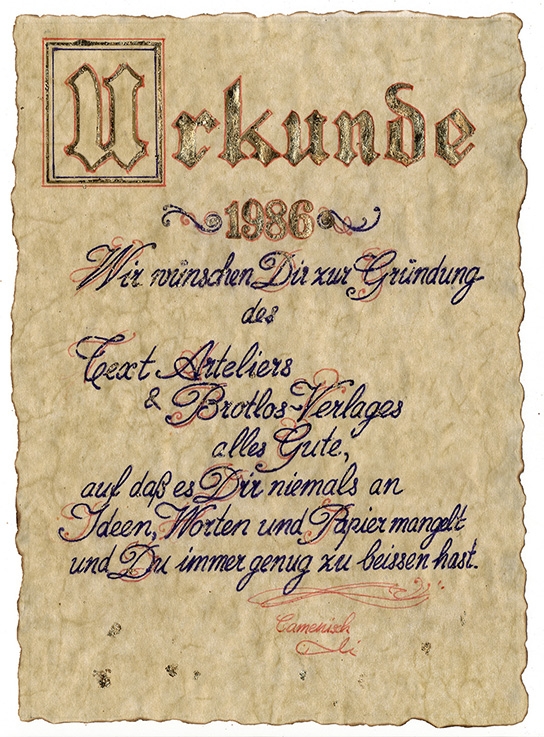 Urkunde
1986
Wir wünschen Dir zur Gründung
des
Text Arteliers
& Brotlos-Verlages
alles Gute,
auf daß es Dir niemals an
Ideen, Worten und Papier mangelt
und Du immer genug zu beissen hast.
Camenisch